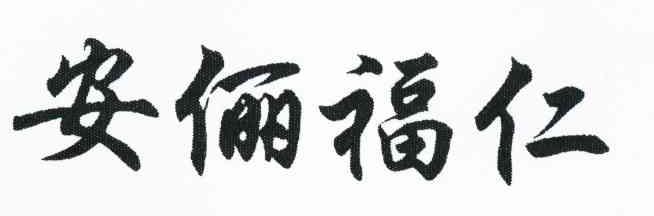 安俪福仁